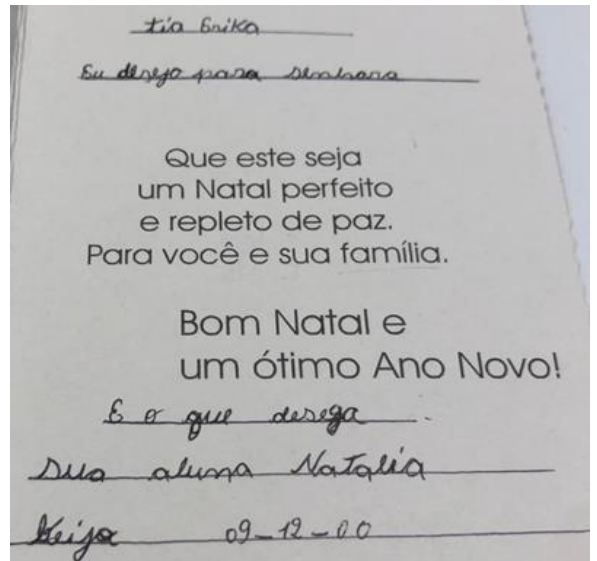 tia Erika
Eu desejo para senhora
Que este seja
um Natal perfeito
e repleto de paz.
Para você e sua família.
Bom Natal e
um ótimo Ano Novo!
E o que desega
sua aluna Natalia
Keija 09-12-00